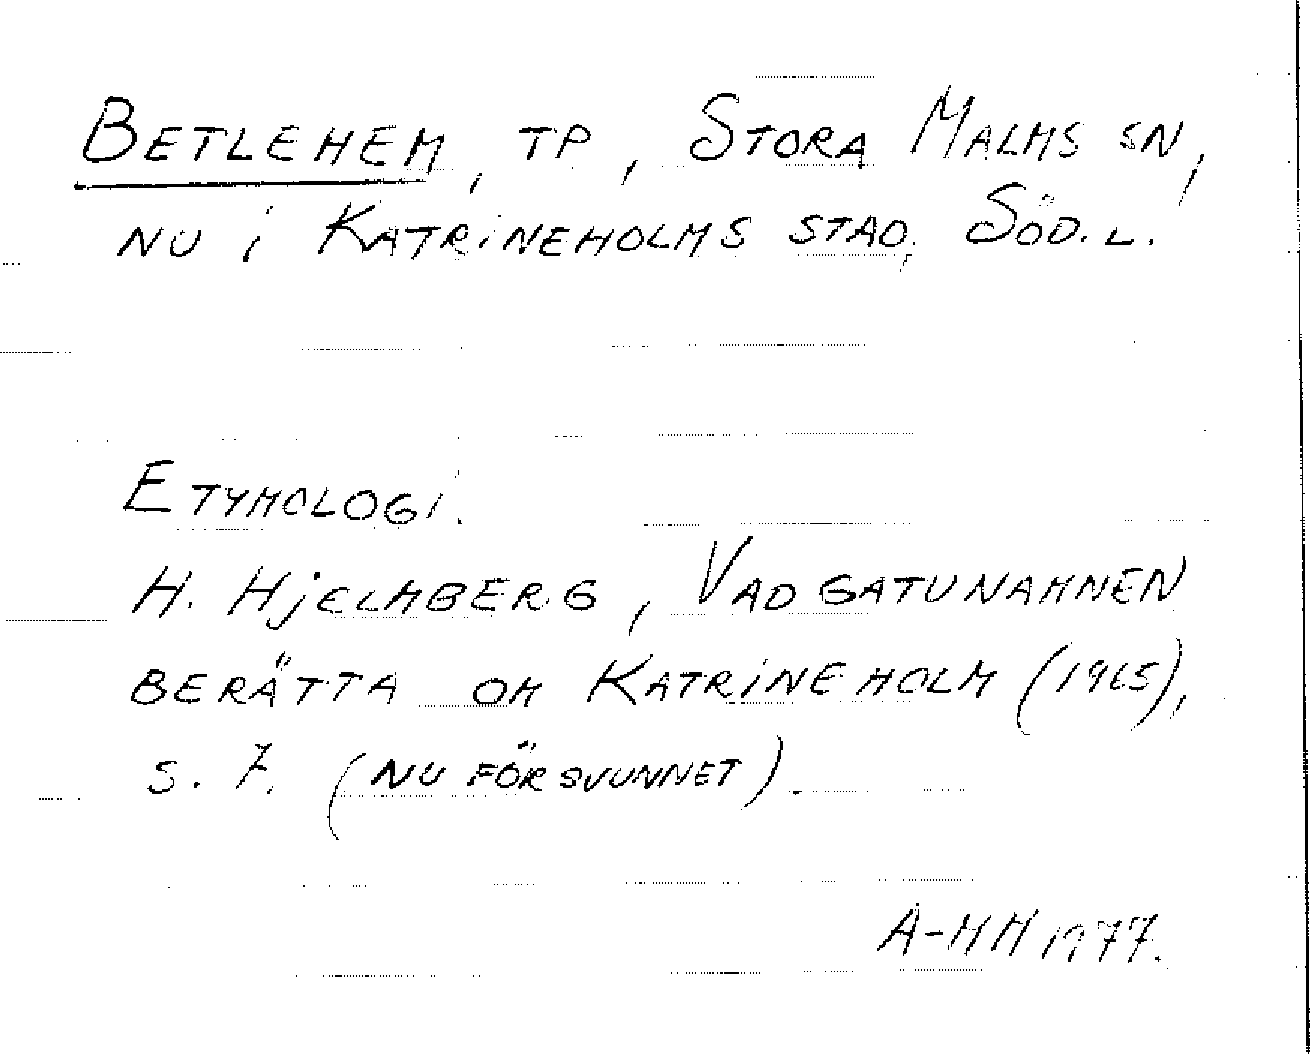 BETLEHEM, TP, STORA MALMS SN,
NU i KATRINEHOLMS STAD, SÖD.L.
ETYMOLOGI.
H. HJELMBERG, VAD GATUNAMNEN
BERÄTTA OM KATRINEHOLM (1965),
S. 7. (NU FÖRSVUNNET).
A-MH 1977.